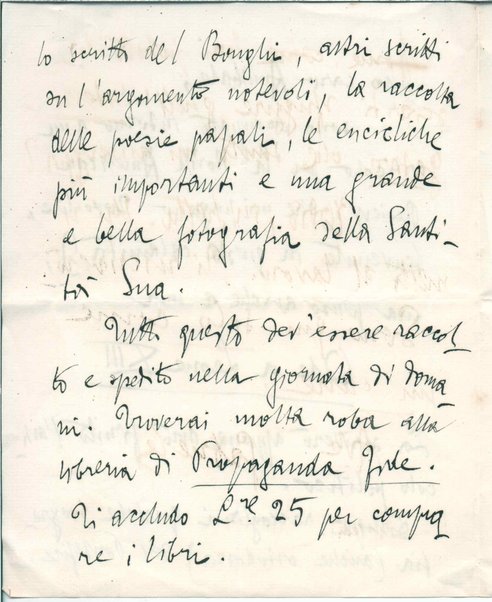 lo scritto del Bonghi, altri scritti
su l'argomento notevoli, la raccolta
delle poesie papali, le encicliche
più importanti e una grande
e bella fotografia della Santi-
tà Sua.
Tutto questo dev'essere raccol
to e spedito nella giornata di doma
ni. Troverai molta roba alla
libreria di Propaganda Fide.
Ti accludo L.re 25 per compra
re i libri.